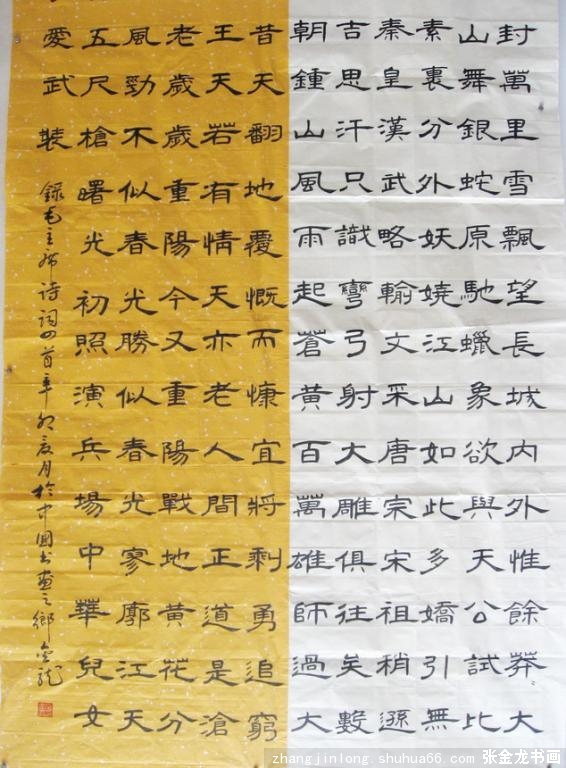 封萬里雪飄望長城内外惟餘莽〻大
山舞銀蛇原馳蠟象欲與天公試比
素裏分外妖嬈江山如此多嬌引無
秦皇漢武略輸文采唐宗宋祖稍遜
吉思汗只識彎弓射大雕俱往矣數
朝鍾山風雨起蒼黄百萬雄師過大
昔天翻地覆慨而慷宜將剩勇追窮
王天若有情天亦老人間正道是滄
老歲歲重陽今又重陽戰地黄花分
風勁不似春光勝似春光寥廓江天
五尺槍曙光初照演兵場中華兒女
愛武裝
錄毛主席诗詞四首辛卯夏月於中國书画之鄉金龍
zhangjinlong.shuhua66.com 张金龙书画